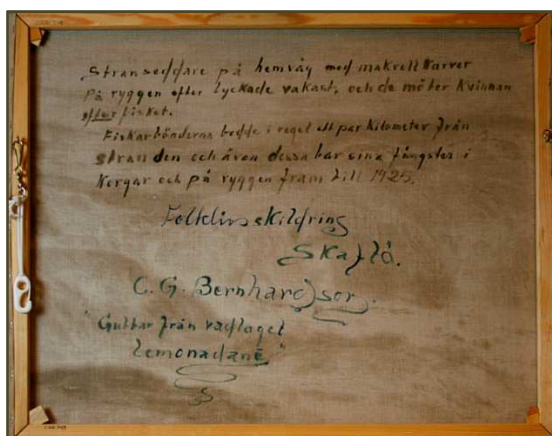 Stranseddare på hemväg med makrell Karver
På ryggen efter lyckade vakant, och de möter Kvinnan
efter fisket.
Fiskarbönderna bodde i regel ett par Kilometer från
stranden och även dessa bar sina fångster i
Korgar och på ryggen fram till 1925.
Folklivsskildring
Skaftö.
C. G. Bernhardson.
"Gubbar från vadlaget
Lemonadane"